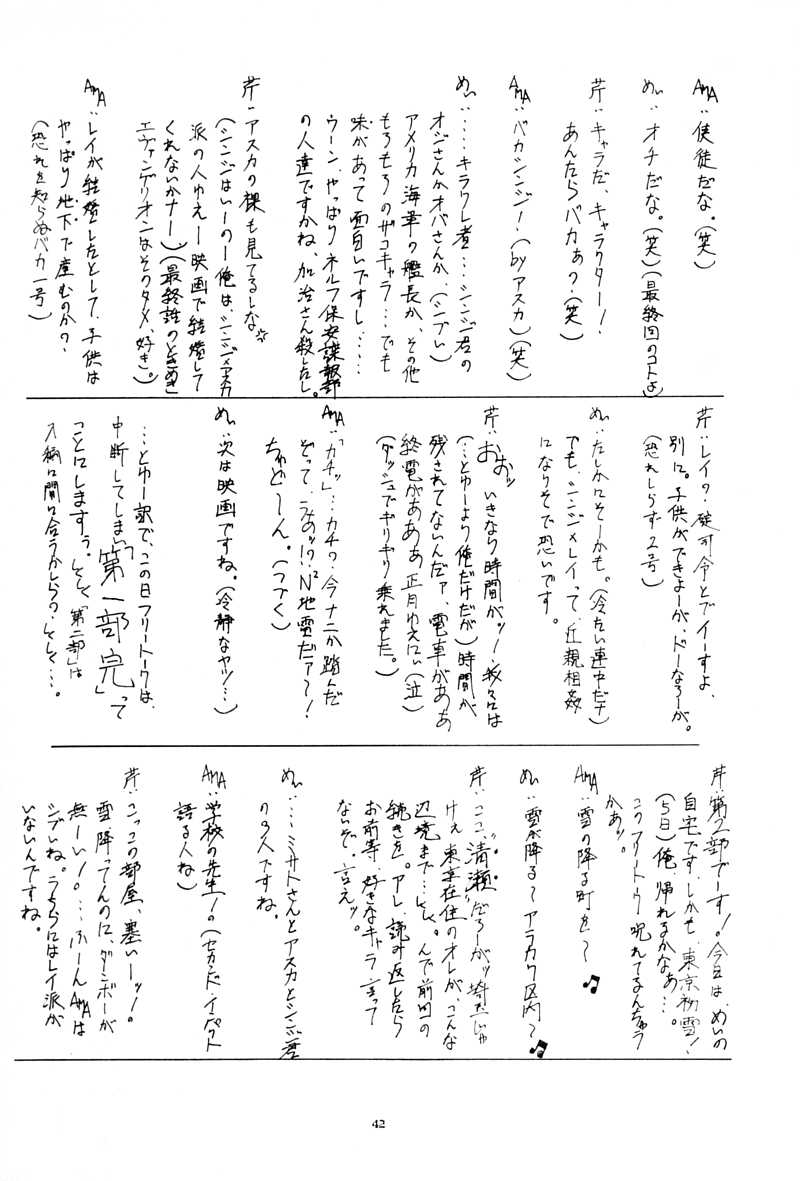 AMA:使徒だな。(笑)
めい:オチだな。(笑)(最終回のコトよ)
芹:キャラだ、キャラクター!
あんたらバカぁ?(笑)
AMA:バカシンジ!(byアスカ)(笑)
めい:……キラワレ者……シンジ君の
オジさんかオバさんか、(シブい)
アメリカ海軍の艦長か、その他
もろもろのザコキャラ…でも
味があって面白いですし……
ウーン、やっぱりネルフ保安諜報部
の人達ですかね、加治さん殺したし。
芹:アスカの裸も見てるしな
(シンジはいーのー俺は、シンジ×アスカ
派の人ゆえー映画で結婚して
くれないかナー)(最終話のときめき
エヴァンゲリオンはそのタメ、好き。)
AMA:レイが結婚したとして、子供は
やっぱり地下で産むのか?
(恐れを知らぬバカ一号)
芹:レイ?碇司令とでイーすよ、
別に。子供ができよーが、ドーなろーが。
(恐れしらず2号)
めい:たしかにそーかも。(冷たい連中だナ)
でも、シンジ×レイって、近親相姦
になりそで恐いです。
芹:おおッ いきなり時間がッ!我々には
(…とゆーより俺だけだが)時間が
残されてないんだァ、電車がああ
終電があああ 正月ゆえにぃ(泣)
(ダッシュでギリギリ乗れました。)
AMA:「カチッ」…カチ?今ナニか踏んだ
ぞって、うおッ!?N²地雷だァ〜!
ちゅど〜ん。(つづく)
めい:次は映画ですね。(冷静なヤツ…)
…とゆー訳で、この日フリートークは、
中断してしまい「第一部完」って
ことにしますぅ。さて「第二部」は
入稿に間に合うかしら?さて…。
芹:第2部でーす!今日は、めいの
自宅です。しかも、東京初雪!
(5日)俺、帰れるかなあ…。
このフリートーク呪れてるんちゃう
かぁッ。
AMA:雪の降る町を〜♪
めい:雪が降る〜アラカワ区内〜♪
芹:ここ、“清瀬”だろーがッ埼玉じゃ
けぇ 東京在住のオレが、こんな
辺境まで…。んで前回の
続きを。アレ、読み返したら
お前等、好きなキャラ言って
ないぞ、言えッ。
めい:……ミサトさんとアスカとシンジ君
の3人ですね。
AMA:学校の先生!。(セカンド・インパクト
語る人ね)
芹:こっこの部屋、寒いーッ!。
雪降ってんのに、ダンボーが
無ーい!。…ふーんAMAは
シブいね。うちらにはレイ派が
いないんですね。
42